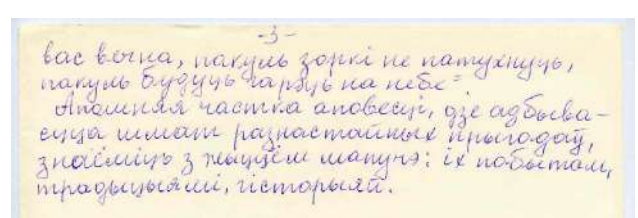 -3-
вас вечна, пакуль зоркі не патухнуць,
пакуль будуць гарэць на небе"
Апошняя частка аповесці, дзе адбыва-
ецца шмат разнастайных прыгодаў,
знаёміць з жыццём мапучэ: іх побытам,
традыцыямі, гісторыяй.